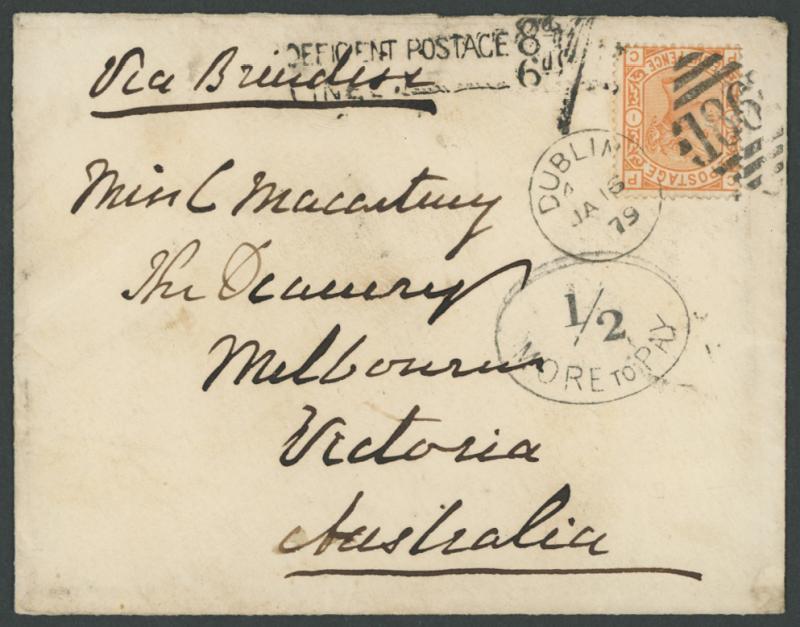 DEFICIENT POSTAGE 8d
FINE 6d
Via Brindisi
DUBLIN
JA 16
79
186
POSTAGE
PENCE
Miss C Macartney
The Deanery
Melbourne
Victoria
Australia
1/2
MORE TO PAY